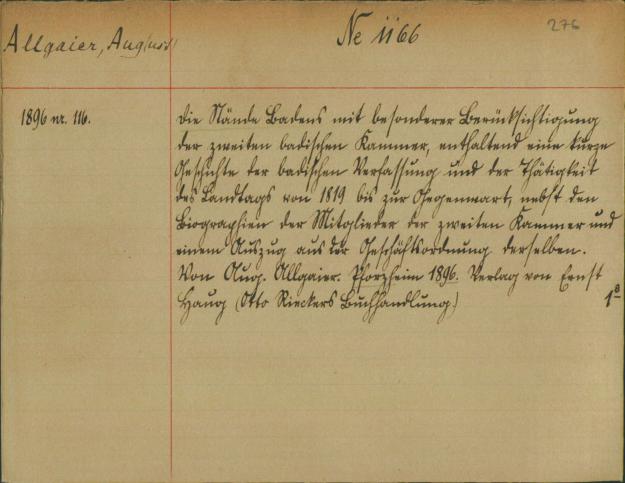 Allgaier, Aug(ust)
Ne 1166
276
1896 nr. 116.
Die Stände Badens mit besonderer Berücksichtigung
der zweiten badischen Kammer, enthaltend eine kurze
Geschichte der badischen Verfassung und der Thätigkeit
des Landtags von 1819 bis zur Gegenwart, nebst den
Biographien der Mitglieder der zweiten Kammer und
einem Auszug aus der Geschäftsordnung derselben.
Von Aug. Allgaier. Pforzheim 1896. Verlag von Ernst
Haug (Otto Rieckers Buchhandlung)
8
1